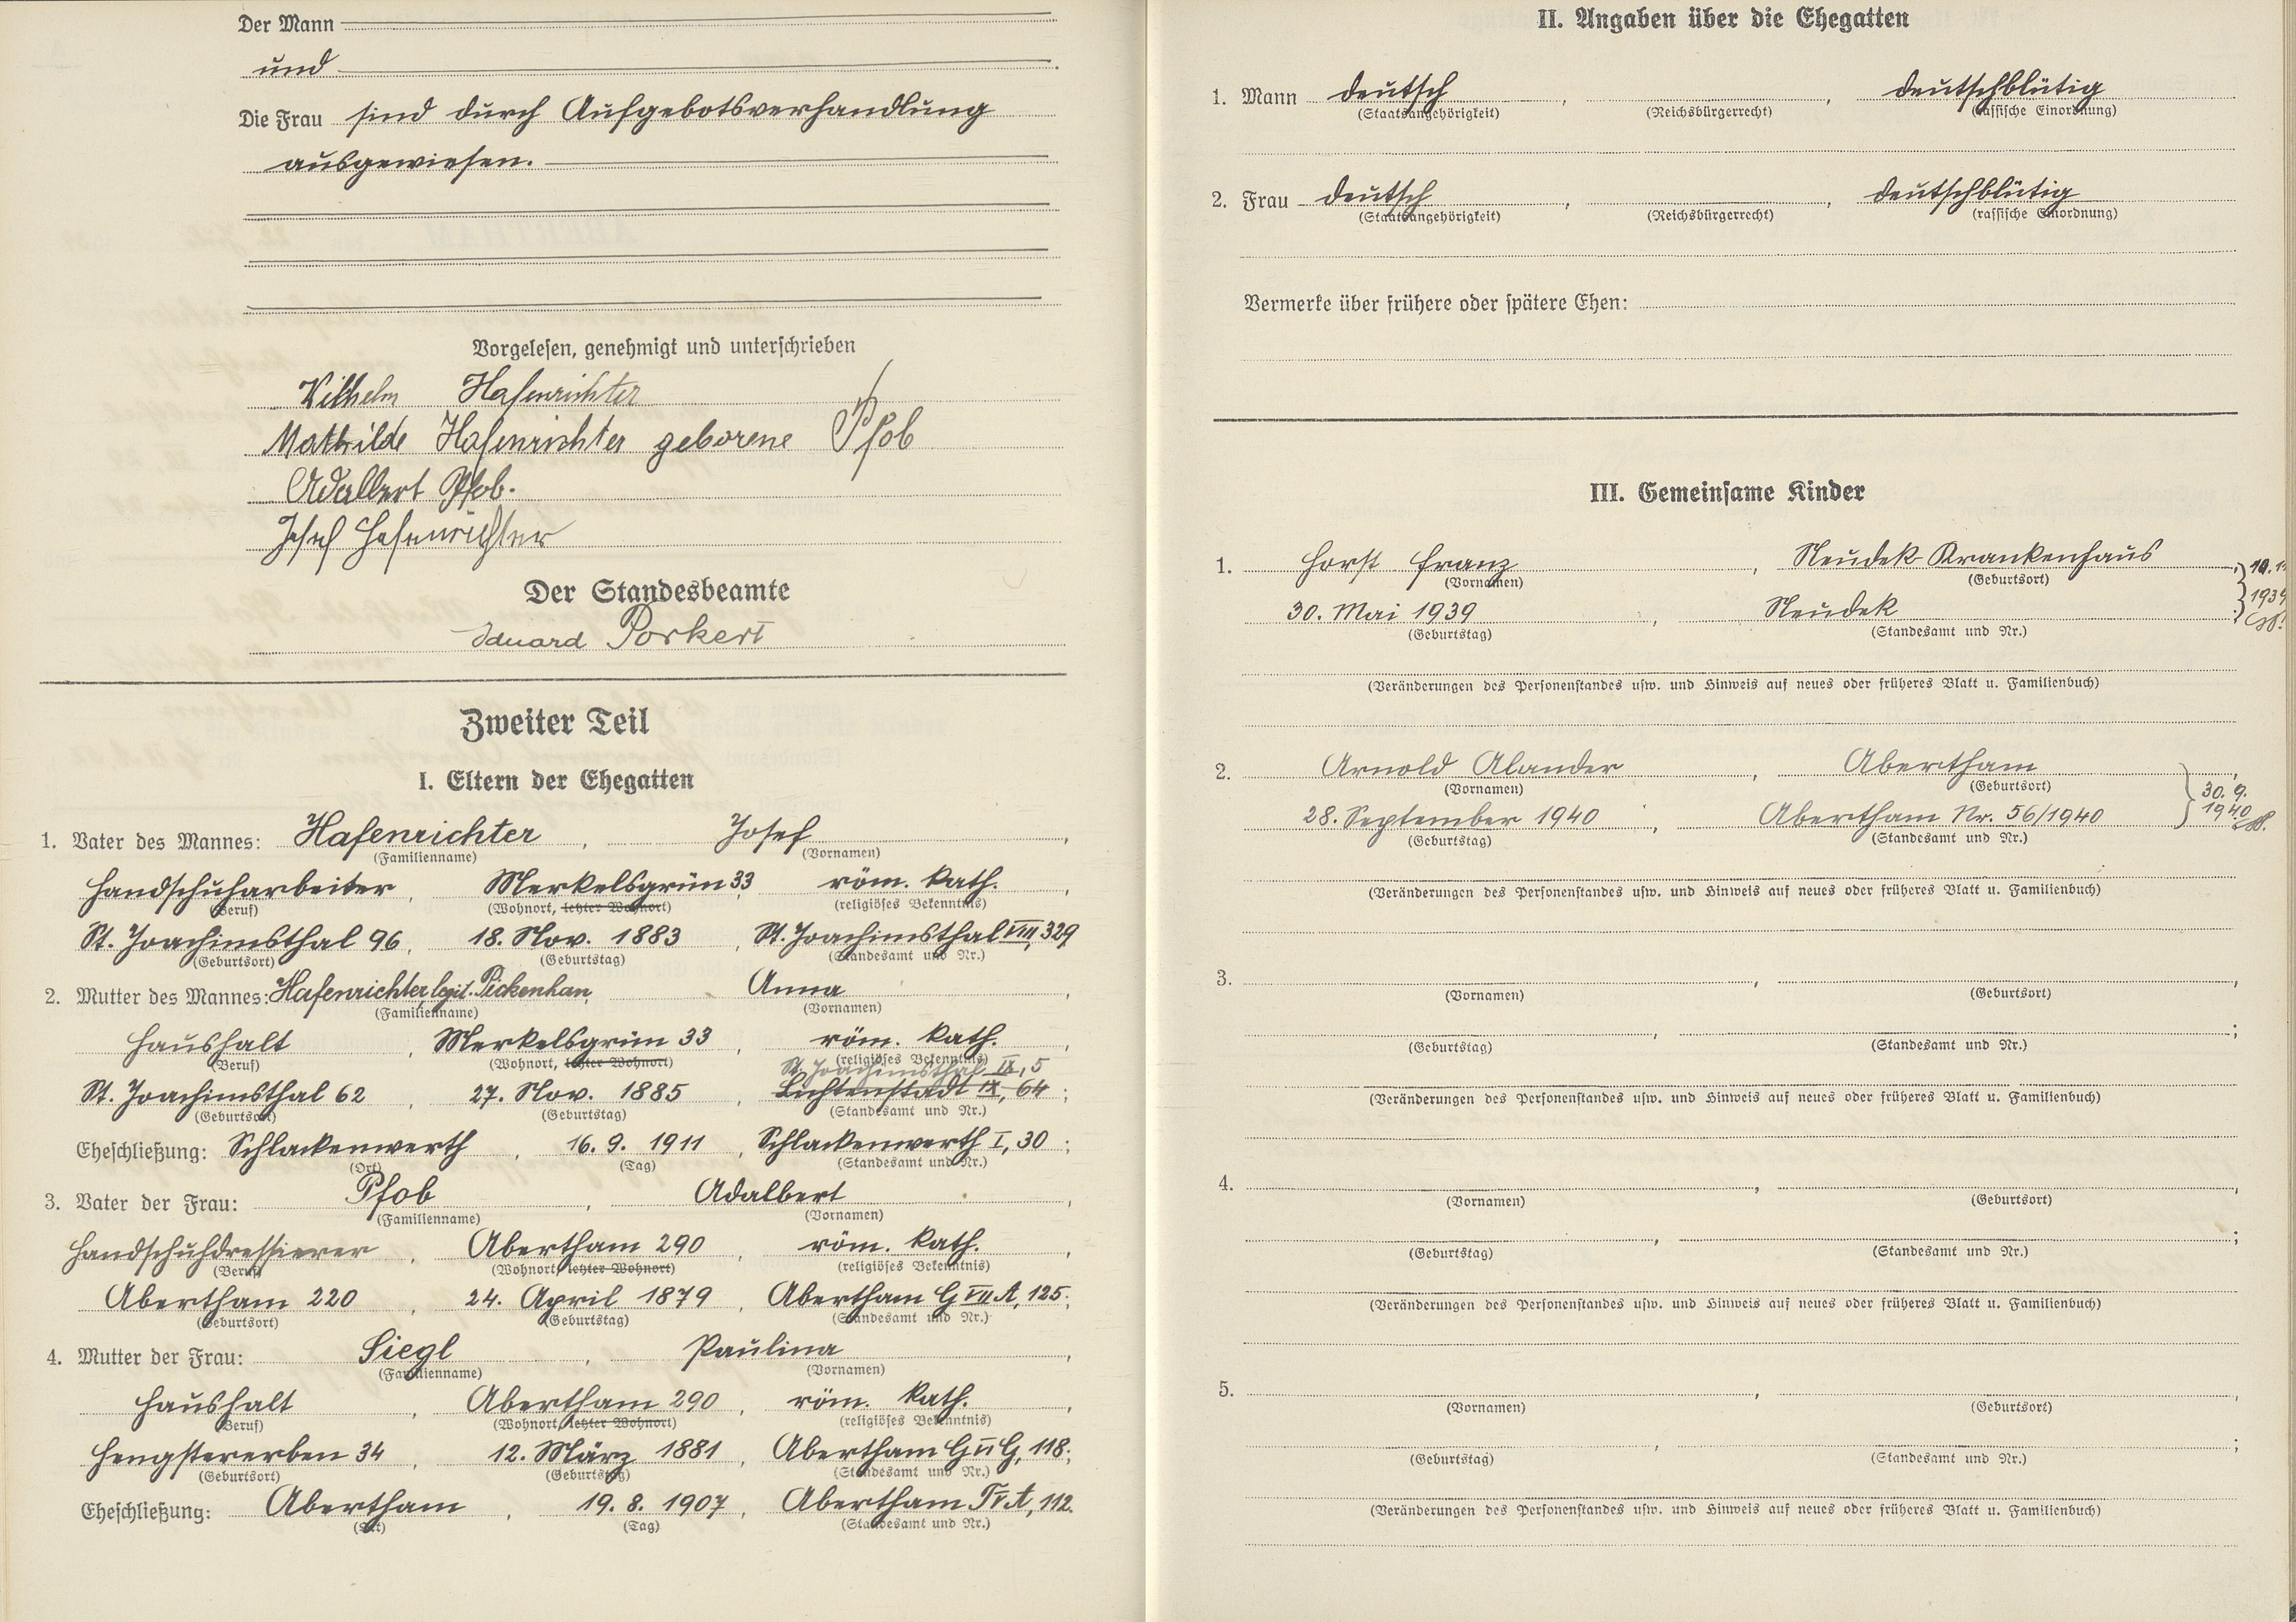 Der Mann
und
Die Frau sind durch Aufgebotsverhandlung
ausgewiesen.
Vorgelesen, genehmigt und unterschrieben
Wilhelm Hafenrichter
Mathilde Hafenrichter geborene Pfob
Adalbert Pfob.
Josef Hafenrichter
Der Standesbeamte
Eduard Porkert
Zweiter Teil
I. Eltern der Ehegatten
1. Vater des Mannes: Hafenrichter, Josef,
(Familienname) (Vornamen)
Handschuharbeiter, Merkelsgrün 33, röm. kath.,
(Beruf) (Wohnort, letzter Wohnort) (religiöses Bekenntnis)
St. Joachimsthal 96, 18. Nov. 1883, St. Joachimsthal VIII, 329
(Geburtsort) (Geburtstag) (Standesamt und Nr.)
2. Mutter des Mannes: Hafenrichter, legit. Pickenhan, Anna,
(Familienname) (Vornamen)
Haushalt, Merkelsgrün 33, röm. kath.,
(Beruf) (Wohnort, letzter Wohnort) (religiöses Bekenntnis)
St. Joachimsthal IX, 5
St. Joachimsthal 62, 27. Nov. 1885, Lichtenstadt IX, 64;
(Geburtsort) (Geburtstag) (Standesamt und Nr.)
Eheschließung: Schlackenwerth, 16. 9. 1911, Schlackenwerth I, 30;
(Ort) (Tag) (Standesamt und Nr.)
3. Vater der Frau: Pfob, Adalbert,
(Familienname) (Vornamen)
Handschuhdressierer, Abertham 290, röm. kath.,
(Beruf) (Wohnort, letzter Wohnort) (religiöses Bekenntnis)
Abertham 220, 24. April 1879, Abertham G VII A, 125;
(Geburtsort) (Geburtstag) (Standesamt und Nr.)
4. Mutter der Frau: Siegl, Paulina,
(Familienname) (Vornamen)
Haushalt, Abertham 290, röm. kath.,
(Beruf) (Wohnort, letzter Wohnort) (religiöses Bekenntnis)
Hengstererben 34, 12. März 1881, Abertham G II G, 118;
(Geburtsort) (Geburtstag) (Standesamt und Nr.)
Eheschließung: Abertham, 19. 8. 1907, Abertham T V A, 112.
(Ort) (Tag) (Standesamt und Nr.)
II. Angaben über die Ehegatten
1. Mann deutsch, , deutschblütig
(Staatsangehörigkeit) (Reichsbürgerrecht) (rassische Einordnung)
2. Frau deutsch, , deutschblütig
(Staatsangehörigkeit) (Reichsbürgerrecht) (rassische Einordnung)
Vermerke über frühere oder spätere Ehen:
III. Gemeinsame Kinder
1. Horst Franz, Neudek Krankenhaus,
(Vornamen) (Geburtsort)
30. Mai 1939, Neudek; 1939
(Geburtstag) (Standesamt und Nr.)
(Veränderungen des Personenstandes usw. und Hinweis auf neues oder früheres Blatt u. Familienbuch)
2. Arnold Alander, Abertham, 30. 9.
(Vornamen) (Geburtsort)
28. September 1940, Abertham Nr. 56/1940 1940
(Geburtstag) (Standesamt und Nr.)
(Veränderungen des Personenstandes usw. und Hinweis auf neues oder früheres Blatt u. Familienbuch)
3. , ,
(Vornamen) (Geburtsort)
, ;
(Geburtstag) (Standesamt und Nr.)
(Veränderungen des Personenstandes usw. und Hinweis auf neues oder früheres Blatt u. Familienbuch)
4. , ,
(Vornamen) (Geburtsort)
, ;
(Geburtstag) (Standesamt und Nr.)
(Veränderungen des Personenstandes usw. und Hinweis auf neues oder früheres Blatt u. Familienbuch)
5. , ,
(Vornamen) (Geburtsort)
, ;
(Geburtstag) (Standesamt und Nr.)
(Veränderungen des Personenstandes usw. und Hinweis auf neues oder früheres Blatt u. Familienbuch)